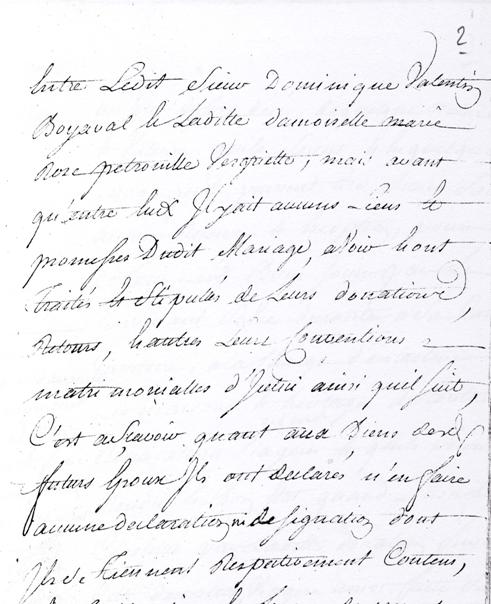 2
Entre Ledit Sieur Dominique Valentin
Boyaval et Laditte damoiselle marie
Rose petronille Vergriette, mais avant
qu'entre Eux Jl y ait aucuns Liens et
promesses Dudit Mariage, a Voir Eont
Traités et Stipulés de Leurs donnations,
Retours, Eautres Leurs Conventions
matrimonialles d'Icelui ainsi qu'il suit,
C'est a Scavoir quant aux Biens desd
futurs Epoux Jls ont declarés n'en faire
aucune declaration ni designation dont
Jls se Tiennent Respectivement Contens,